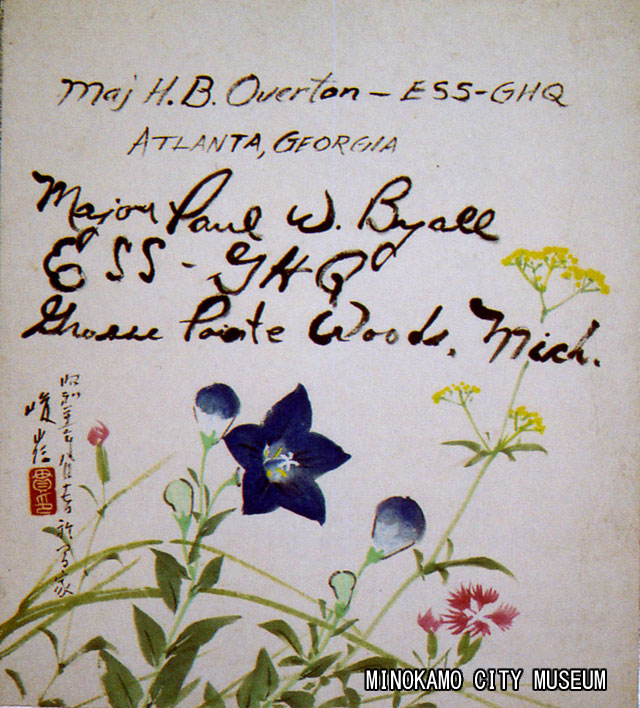 Maj H.B. Overton – ESS-GHQ
ATLANTA, GEORGIA
Major Paul W. Byall
ESS - GHQ
Grosse Pointe Woods, Mich.
昭和二十
MINOKAMO CITY MUSEUM